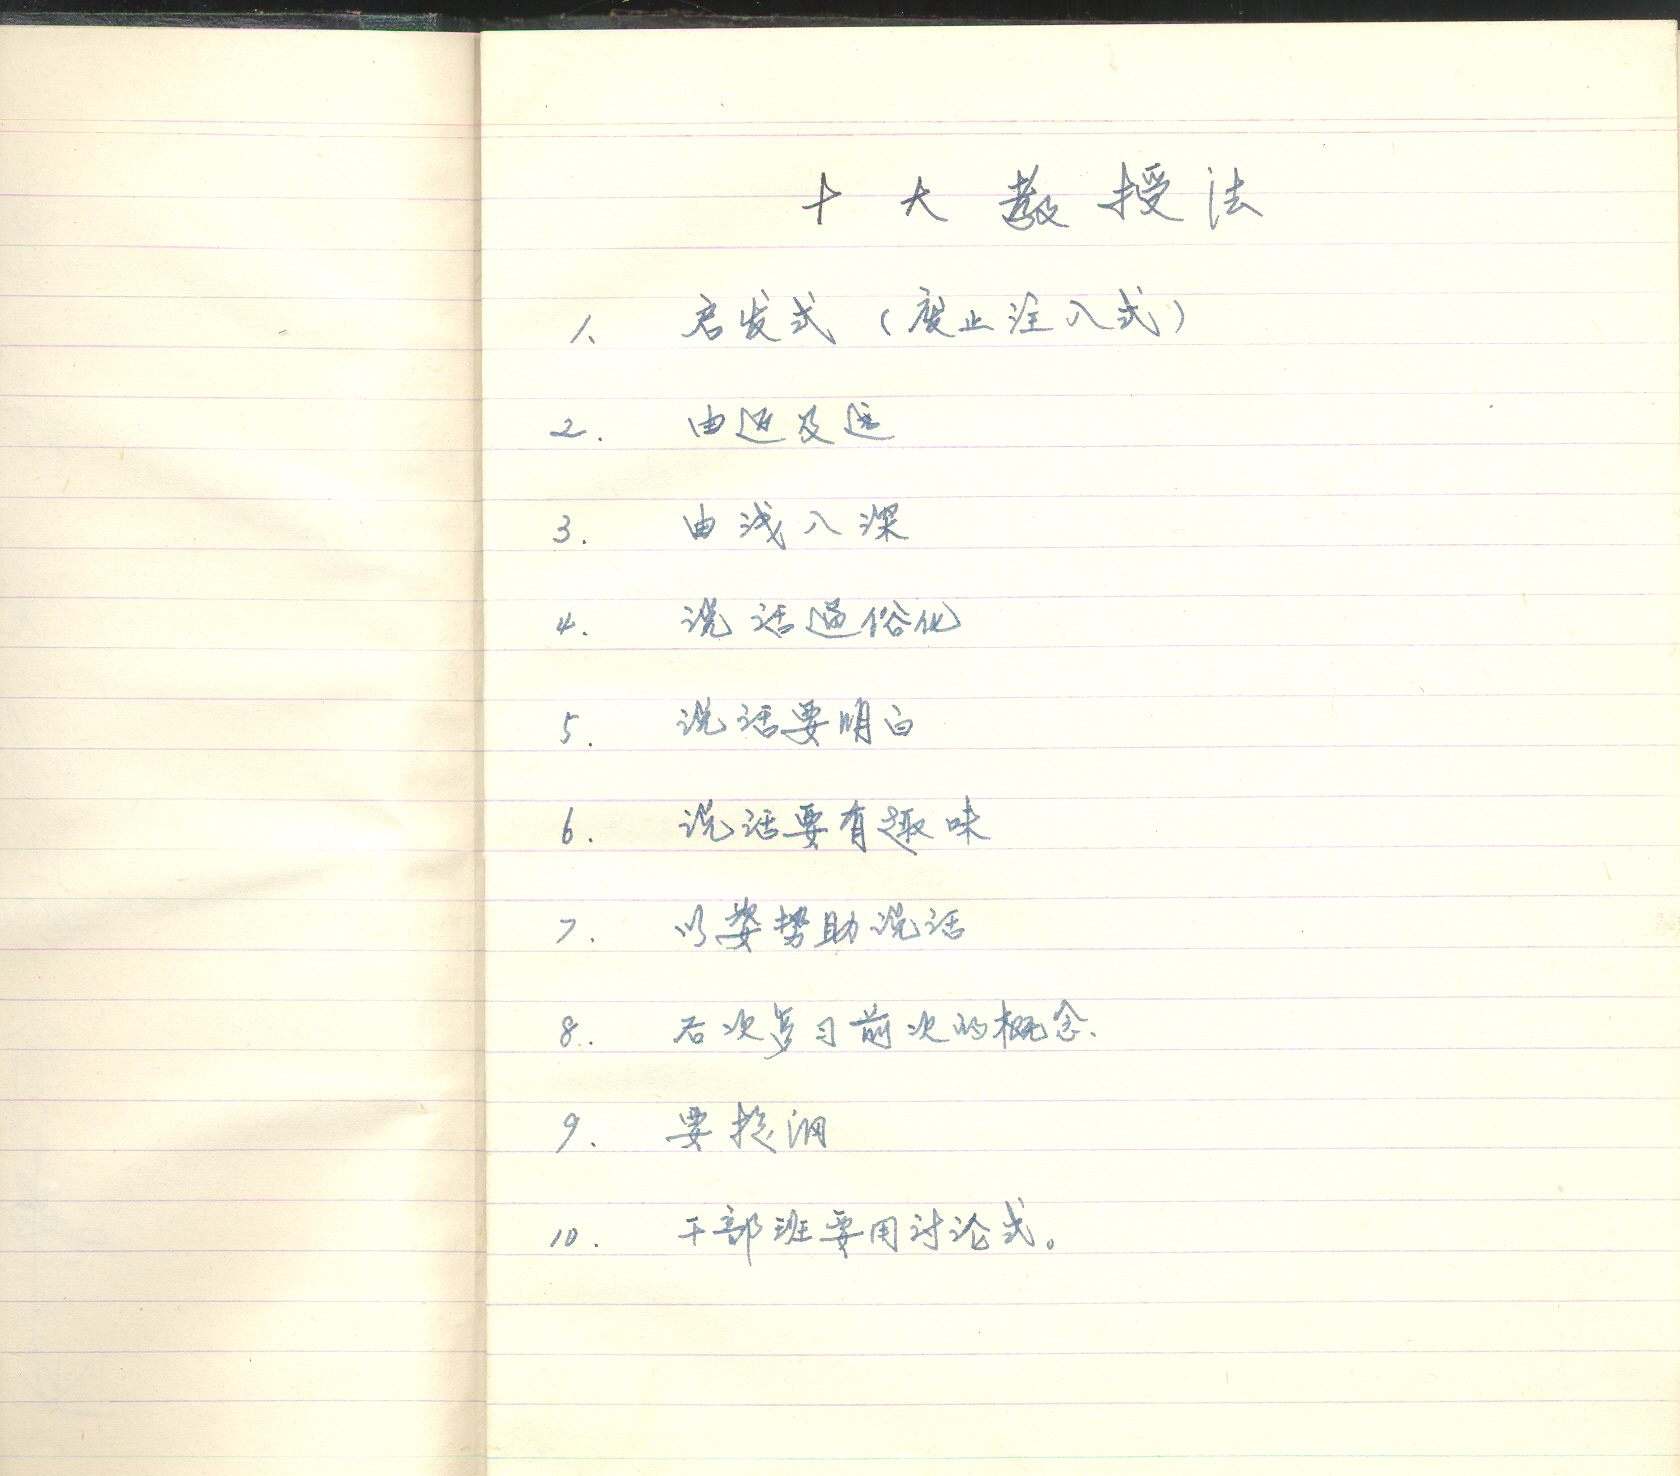 十大教授法
1、 启发式（废止注入式）
2. 由近及远
3. 由浅入深
4. 说话通俗化
5. 说话要明白
6. 说话要有趣味
7. 以姿势助说话
8. 后次复习前次的概念、
9. 要提纲
10. 干部班要用讨论式。